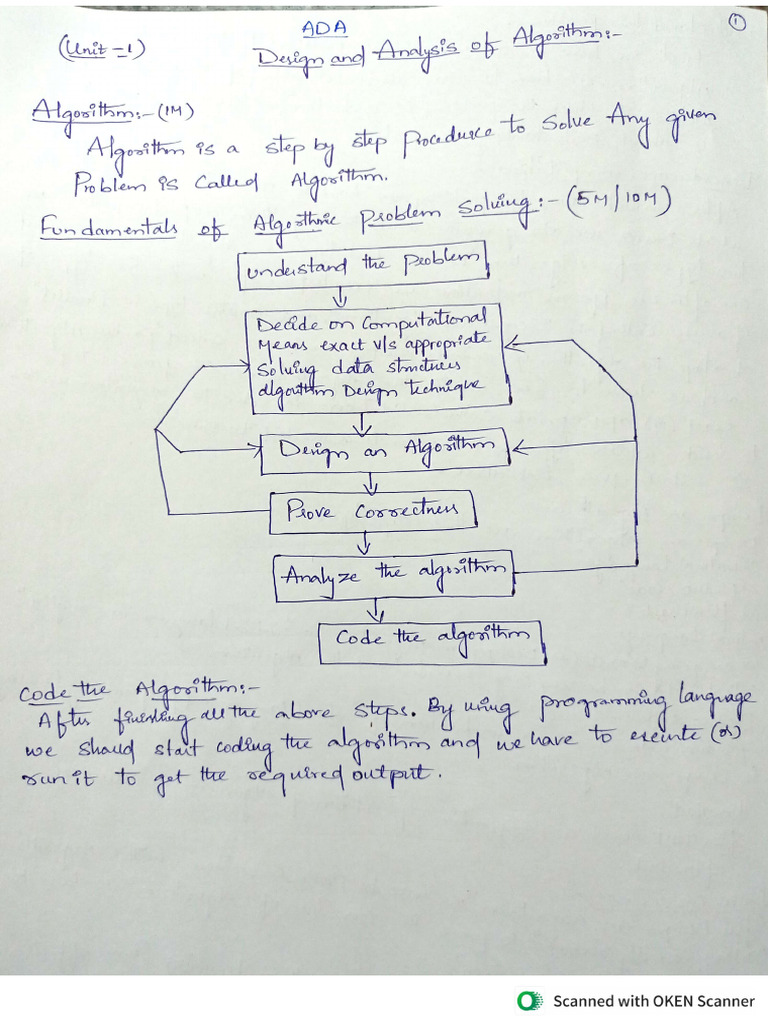 ADA
①
(Unit-1)
Design and Analysis of Algorithm:-
Algorithm:- (1M)
Algorithm is a step by step Procedure to Solve Any given
Problem is Called Algorithm.
Fundamentals of Algorthmic Problem Solving:- (5M/10M)
understand the Problem
Decide on Computational
Means exact v/s appropriate
Solving data structures
algorithm Design technique
Design an Algorithm
Prove Correctness
Analyze the algorithm
Code the algorithm
Code the Algorithm:-
After finishing all the above steps. By using programming language
we should start coding the algorithm and we have to execute (or)
run it to get the required output.
Scanned with OKEN Scanner